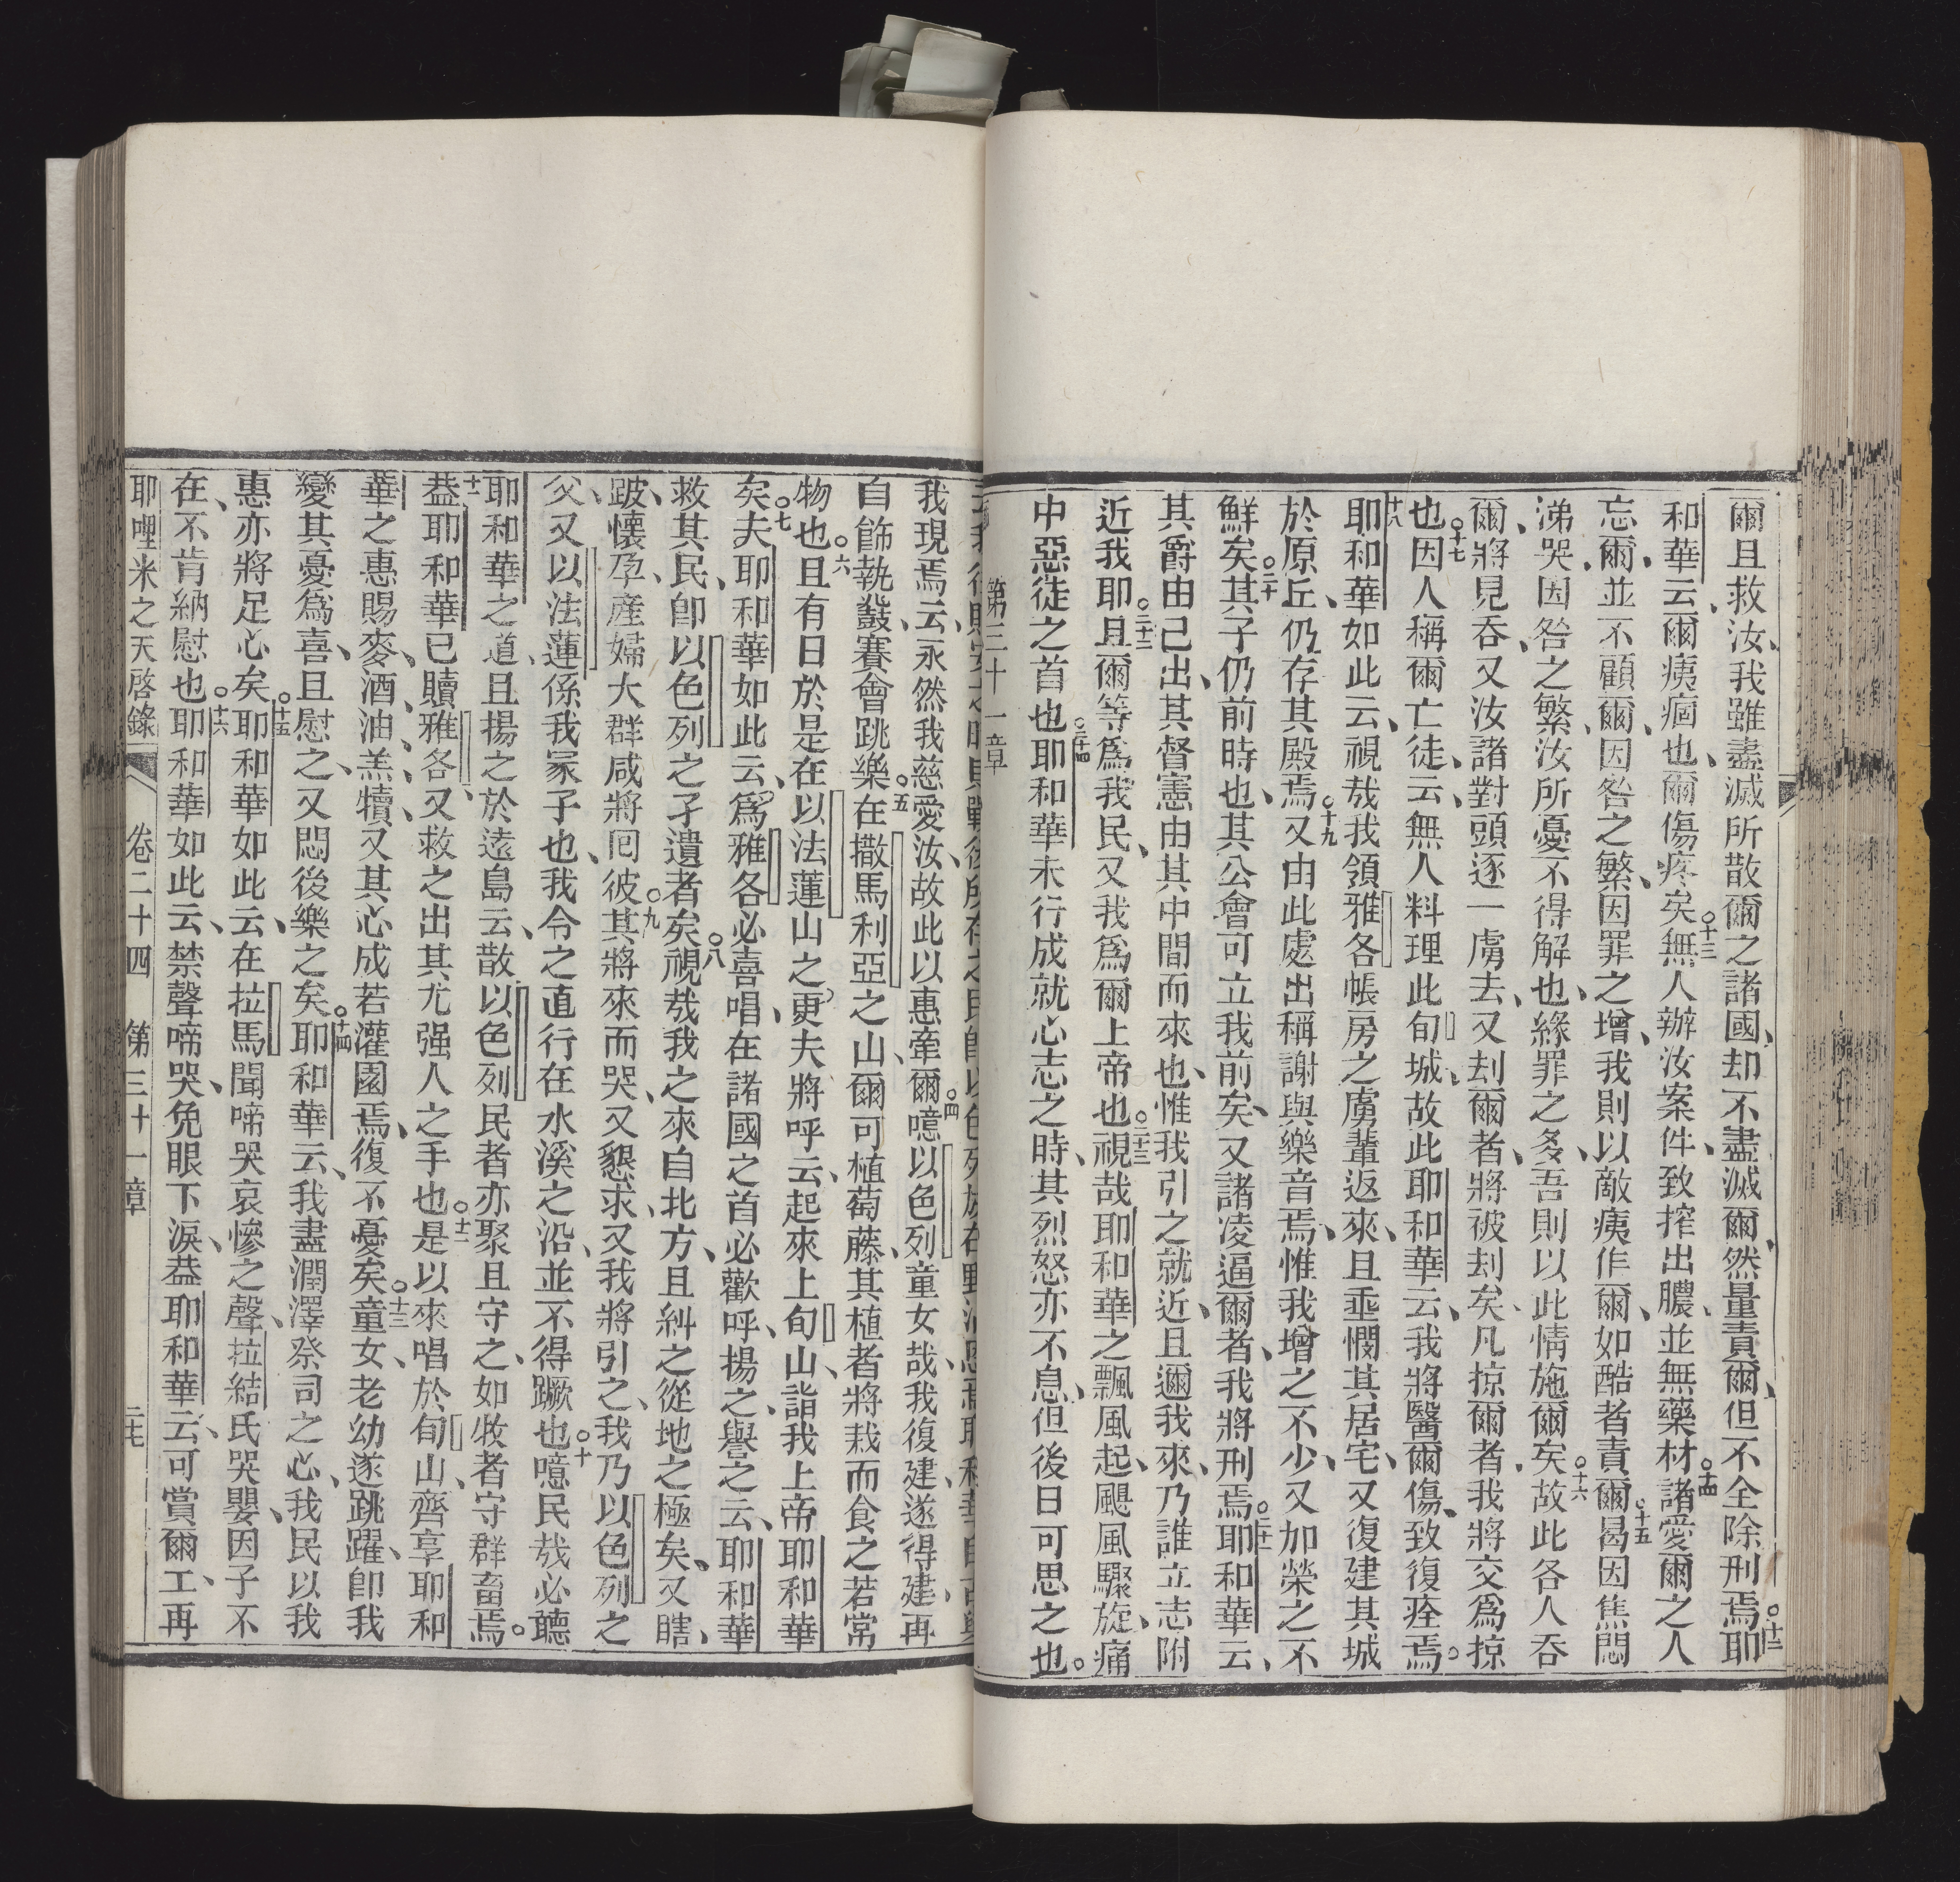 爾且救汝、我雖盡滅所散爾之諸國、却不盡滅爾、然量責爾、但不全除刑焉○十二耶
和華云、爾痍痼也、爾傷疼矣○十三無人辦汝案件、致搾出膿、並無藥材○十四諸愛爾之人
忘爾、並不顧爾、因咎之繁、因罪之增、我則以敵痍作爾、如酷者責爾○十五曷因焦悶
涕哭因咎之繁、汝所憂不得解也、緣罪之多、吾則以此情施爾矣○十六故此各人吞
爾、將見吞、又汝諸對頭逐一虜去、又刦爾者、將被刦矣、凡掠爾者、我將交爲掠
也○十七因人稱爾亡徒、云、無人料理此旬城、故此耶和華云、我將醫爾傷、致復痊焉。
十八耶和華如此云、視哉我領雅各帳房之虜輩返來、且垂憫其居宅、又復建其城
於原丘、仍存其殿焉○十九又由此處出稱謝與樂音焉、惟我增之不少、又加榮之不
鮮矣○二十其子仍前時也、其公會可立我前矣、又諸凌逼爾者、我將刑焉○二十一耶和華云、
其爵由己出、其督憲由其中間而來也、惟我引之就近、且邇我來、乃誰立志附
近我耶○二十二且爾等爲我民、又我爲爾上帝也○二十三視哉耶和華之飄風起、颶風驟旋、痛
中惡徒之首也○二十四耶和華未行成就心志之時、其烈怒亦不息、但後日可思之也。
第三十一章
我現焉、云、永然我慈愛汝、故此以惠牽爾○四噫以色列童女哉、我復建、遂得建、再
自飾執鼗賽會跳樂○五在撒馬利亞之山、爾可植萄藤、其植者將栽而食之若常
物也○六且有日於是在以法蓮山之更夫將呼云、起來上旬山、詣我上帝耶和華
矣○七夫耶和華如此云、爲雅各必喜唱、在諸國之首必歡呼、揚之、譽之、云、耶和華
救其民、卽以色列之孑遺者矣○八視哉我之來自北方、且糾之從地之極矣、又瞎、
跛、懷孕、產婦大群咸將囘彼○九其將來而哭、又懇求、又我將引之、我乃以色列之
父、又以法蓮係我冢子也、我令之直行在水溪之沿、並不得蹶也○十噫民哉必聽
耶和華之道、且揚之於遠島云、散以色列民者亦聚且守之、如收者守群畜焉。
十一葢耶和華已贖雅各、又救之出其尤强人之手也○十二是以來唱於旬山、齊享耶和
華之惠賜麥、酒、油、羔、犢、又其心成若灌園焉、復不憂矣○十三童女、老幼遂跳躍、卽我
變其憂爲喜、且慰之、又悶後樂之矣○十四耶和華云、我盡潤澤祭司之心、我民以我
惠亦將足心矣○十五耶和華如此云、在拉馬聞啼哭哀慘之聲、拉結氏哭嬰、因子不
在、不肯納慰也○十六耶和華如此云、禁聲啼哭、免眼下淚、葢耶和華云、可賞爾工、再
耶哩米之天啓錄 卷二十四 第三十一章 二七